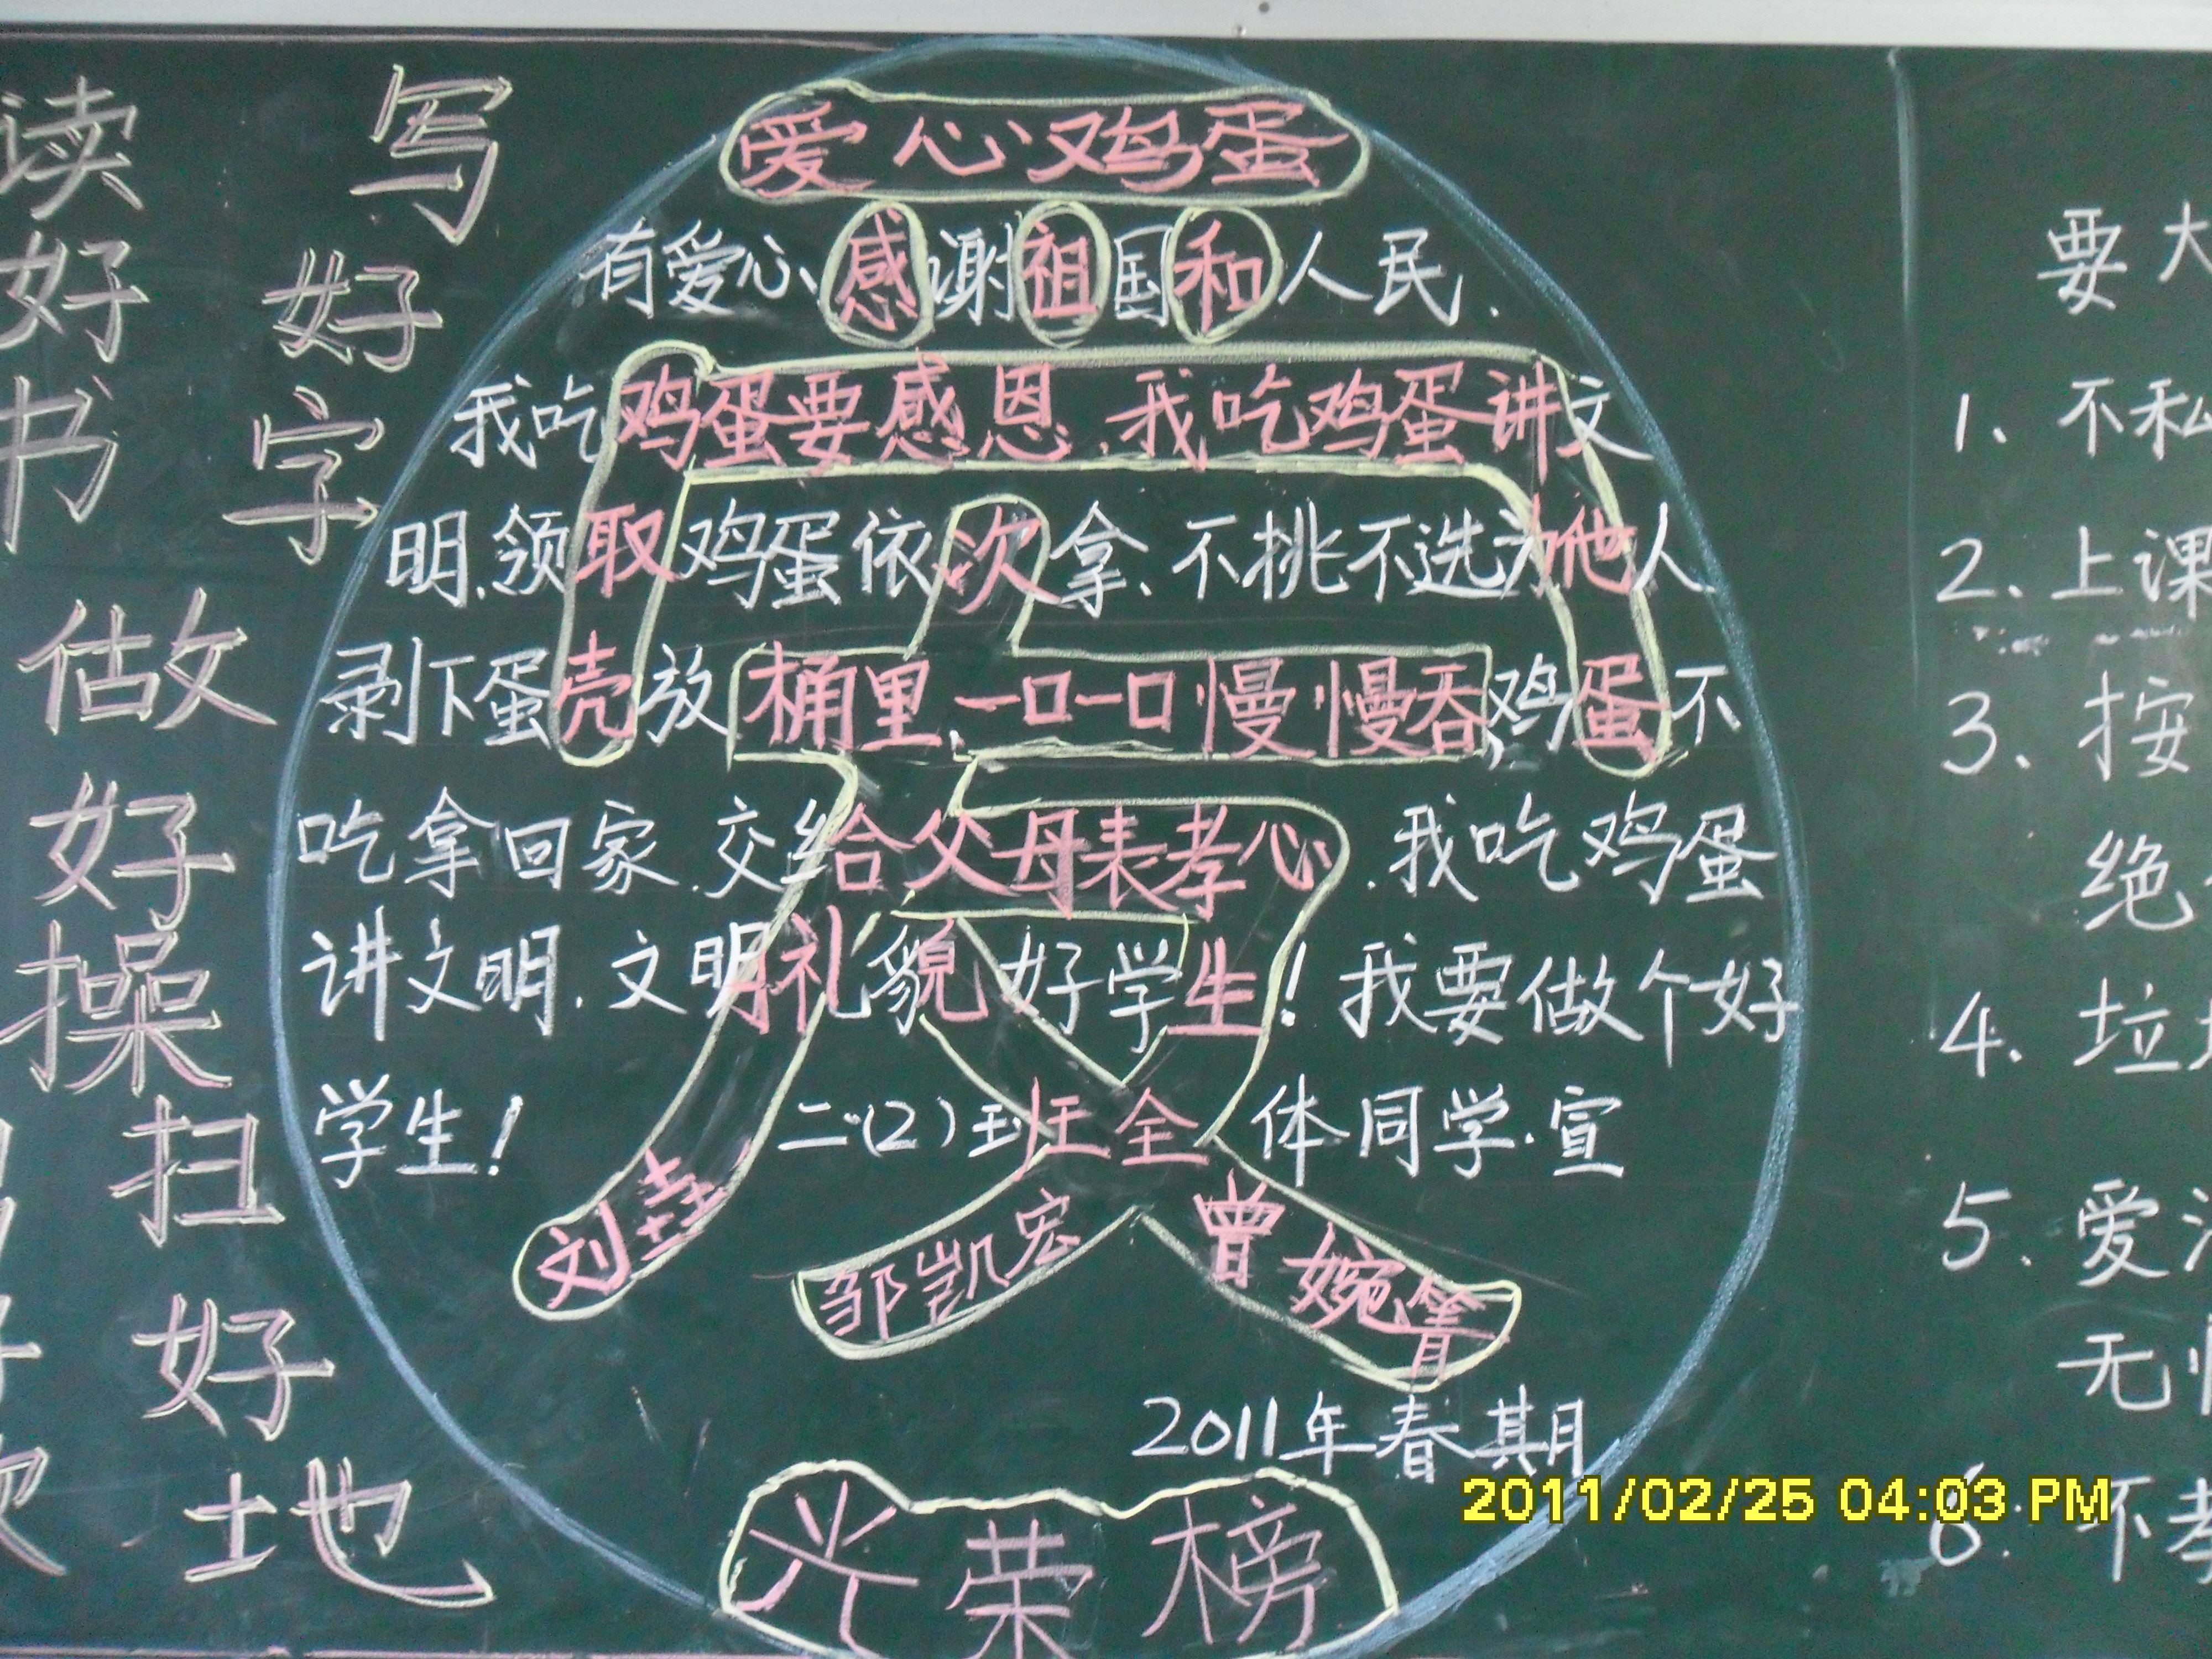 读好书
写好字
做好操
扫好地
爱心鸡蛋
有爱心感谢祖国和人民.
我吃鸡蛋要感恩,我吃鸡蛋讲文
明,领取鸡蛋依次拿、不挑不选为他人
剥下蛋壳放桶里,一口一口慢慢吞,鸡蛋不
吃拿回家,交给父母表孝心,我吃鸡蛋
讲文明,文明礼貌好学生!我要做个好
学生! 二(2)班全体同学.宣
邹凯宏 曾婉箐
2011年春期
光荣榜
要大
1、不私
2、上课
3、按
绝
4、垃
5、爱
无
6、不
2011/02/25 04:03 PM